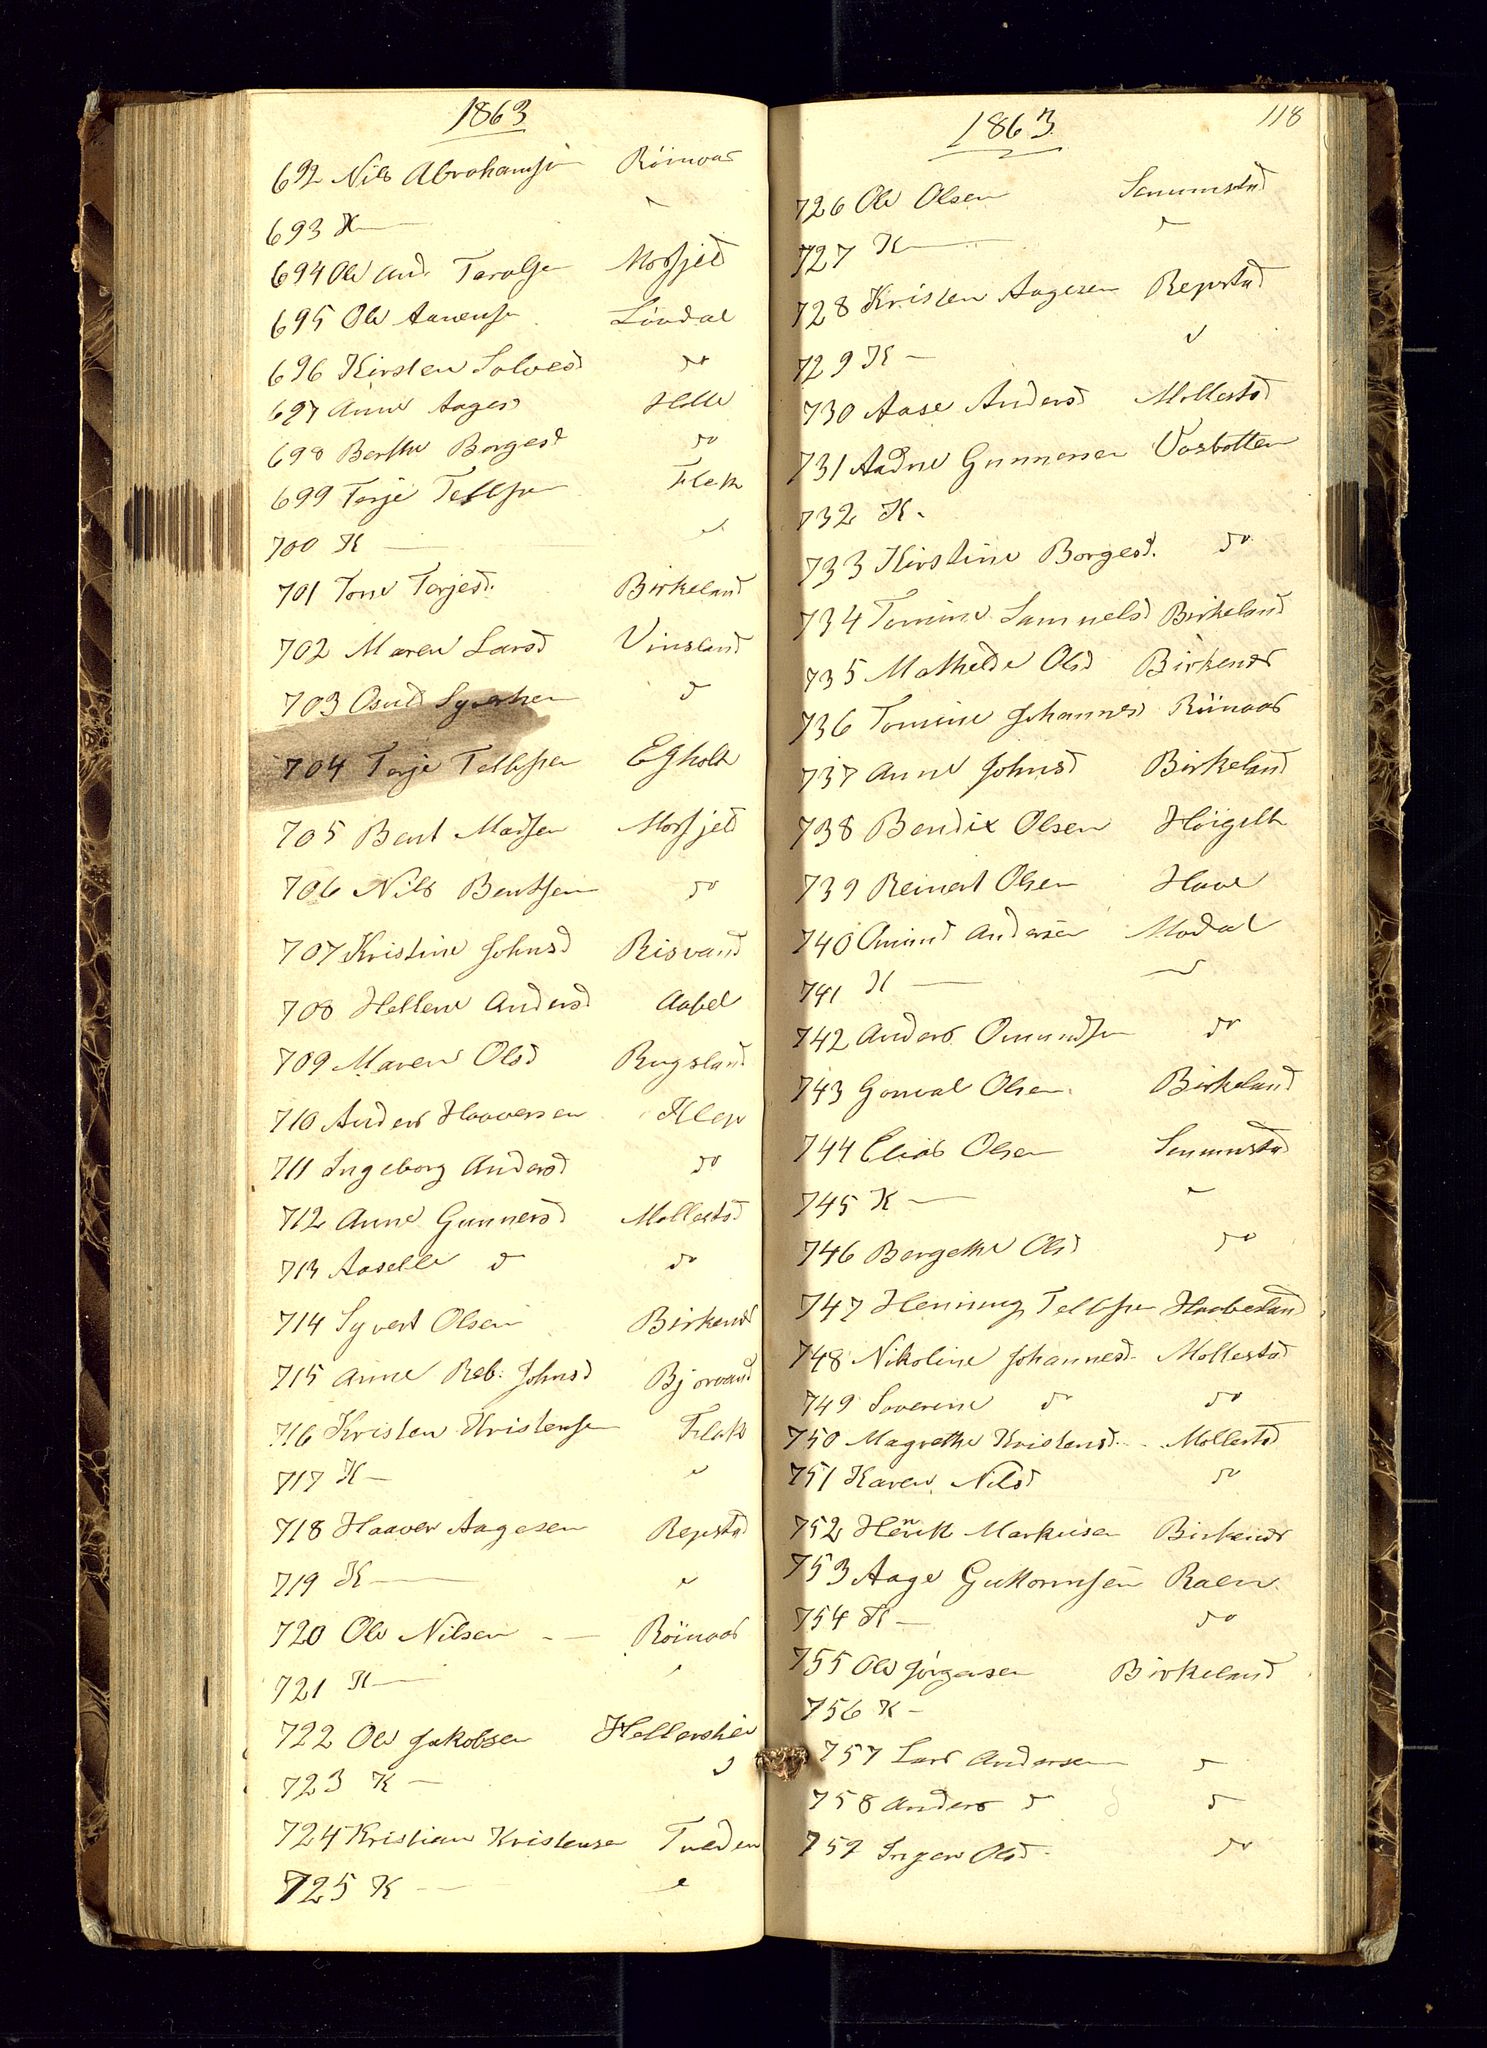 1863
692 Nils Abrahamsen Röinaas
693 K — "
694 Ole And. Taralsen Mosfjeld
695 Ole Aanensen Lövdal
696 Kirsten Solvesd do
697 Anne Aagesd Helle
698 Berthe Borgesd do
699 Terje Tellefsen Flak
700 K — "
701 Tone Terjesd. Birkeland
702 Maren Larsd Vinsland
703 Osuld Syvertsen d
704 Terje Tellefsen Egholt
705 Bent Madsen Mosfjeld
706 Nils Bentsen do
707 Kristine Johnsd Risvand
708 Hellene Andersd Aabel
709 Maren Olsd Rugsland
710 Anders Haaversen Klep
711 Ingeborg Andersd do
712 Anne Gunnersd Mollestad
713 Aaselle d do
714 Syvert Olsen Birkenes
715 Anne Reb. Johnsd Bjorvand
716 Kristen Kristensen Flak
717 K — "
718 Haaver Aagesen Repstad
719 K — "
720 Ole Nilsen — Röinaas
721 K — "
722 Ole Jakobsen
723 K — "
724 Kristian Kristensen Tveden
725 K — "
118
1863
726 Ole Olsen Senumstad
727 K — "
728 Kristen Aagesen Repstad
729 K — "
730 Aase Andersd Mollestad
731 Aadne Gunnersen Vasbotten
732 K.
733 Kirstine Borgesd. do
734 Tomine Samuelsd Birkeland
735 Mathilde Olsd Birkenes
736 Tomine Johannesd Röinaas
737 Anne Johnsd Birkeland
738 Bendix Olsen Höigilt
739 Reinert Olsen Have
740 Omund Andersen Modal
741 K — "
742 Anders Omundsen do
743 Gonval Olsen. Birkeland
744 Elias Olsen Senumstad
745 K — "
746 Bergethe Olsd do
747 Henning Tellefsen Haabesland
748 Nikoline Johannesd. Mollestad
749 Severine do do
750 Magrethe Kristensd. Mollestad
751 Karen Nilsd do
752 Henrik Markusen Birkenes
753 Aage Guttormsen Raen.
754 K — do
755 Ole Jörgensen Birkeland
756 K —
757 Lars Andersen d
758 Anders d d
759 Inger Olsd. do